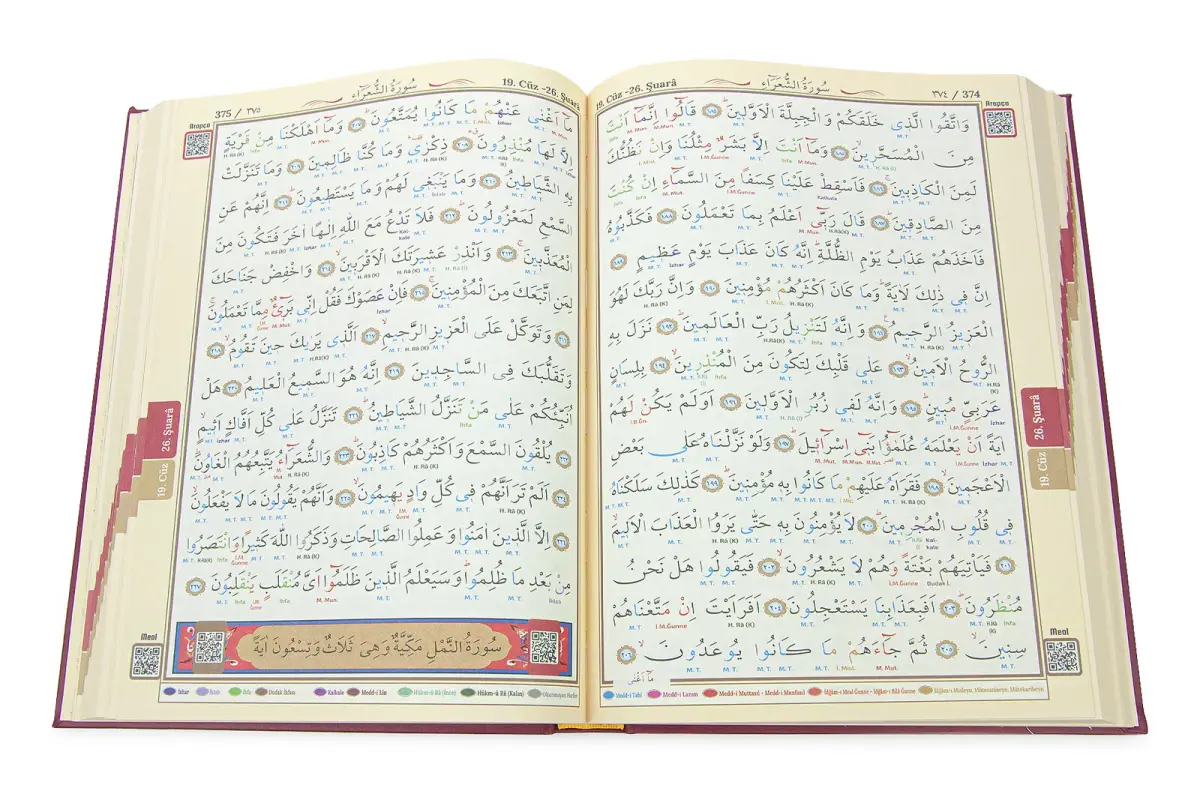 19. Cüz -26. Şuarâ سُورَةُ الشُّعَرَاءِ ٣٧٤ / 374
Arapça
وَاتَّقُوا الَّذٖي خَلَقَكُمْ وَالْجِبِلَّةَ الْاَوَّلٖينَؕ ١٨٤ قَالُٓوا اِنَّمَٓا اَنْتَ
مِنَ الْمُسَحَّرٖينَۙ ١٨٥ وَمَٓا اَنْتَ اِلَّا بَشَرٌ مِثْلُنَا وَاِنْ نَظُنُّكَ
لَمِنَ الْكَاذِبٖينَۚ ١٨٦ فَاَسْقِطْ عَلَيْنَا كِسَفًا مِنَ السَّمَٓاءِ اِنْ كُنْتَ
مِنَ الصَّادِقٖينَؕ ١٨٧ قَالَ رَبّٖٓي اَعْلَمُ بِمَا تَعْمَلُونَ ١٨٨ فَكَذَّبُوهُ
فَاَخَذَهُمْ عَذَابُ يَوْمِ الظُّلَّةِؕ اِنَّهُ كَانَ عَذَابَ يَوْمٍ عَظٖيمٍ ١٨٩
اِنَّ فٖي ذٰلِكَ لَاٰيَةًؕ وَمَا كَانَ اَكْثَرُهُمْ مُؤْمِنٖينَ ١٩٠ وَاِنَّ رَبَّكَ لَهُوَ
الْعَزٖيزُ الرَّحٖيمُ ١٩١ وَاِنَّهُ لَتَنْزٖيلُ رَبِّ الْعَالَمٖينَؕ ١٩٢ نَزَلَ بِهِ
الرُّوحُ الْاَمٖينُۙ ١٩٣ عَلٰى قَلْبِكَ لِتَكُونَ مِنَ الْمُنْذِرٖينَۙ ١٩٤ بِلِسَانٍ
عَرَبِيٍّ مُبٖينٍؕ ١٩٥ وَاِنَّهُ لَفٖي زُبُرِ الْاَوَّلٖينَ ١٩٦ اَوَلَمْ يَكُنْ لَهُمْ
اٰيَةً اَنْ يَعْلَمَهُ عُلَمٰٓؤُا بَنٖٓي اِسْرَٓائٖلَؕ ١٩٧ وَلَوْ نَزَّلْنَاهُ عَلٰى بَعْضِ
الْاَعْجَمٖينَۙ ١٩٨ فَقَرَاَهُ عَلَيْهِمْ مَا كَانُوا بِهٖ مُؤْمِنٖينَؕ ١٩٩ كَذٰلِكَ سَلَكْنَاهُ
فٖي قُلُوبِ الْمُجْرِمٖينَؕ ٢٠٠ لَا يُؤْمِنُونَ بِهٖ حَتّٰى يَرَوُا الْعَذَابَ الْاَلٖيمَۙ
٢٠١ فَيَاْتِيَهُمْ بَغْتَةً وَهُمْ لَا يَشْعُرُونَۙ ٢٠٢ فَيَقُولُوا هَلْ نَحْنُ
مُنْظَرُونَؕ ٢٠٣ اَفَبِعَذَابِنَا يَسْتَعْجِلُونَ ٢٠٤ اَفَرَاَيْتَ اِنْ مَتَّعْنَاهُمْ
سِنٖينَۙ ٢٠٥ ثُمَّ جَٓاءَهُمْ مَا كَانُوا يُوعَدُونَۙ ٢٠٦
مَٓا اَغْنٰى
Meal
26. Şuarâ
19. Cüz
Medd-i Tabî Medd-i Lazım Medd-i Muttasıl - Medd-i Munfasıl İdğam-ı Meal Ğunne - İdğam-ı Bilâ Ğunne İdğam-ı Misleyn, Mütecaniseyn, Mütekaribeyn
375 / ٣٧٥ سُورَةُ الشُّعَرَاءِ 19. Cüz -26. Şuarâ
Arapça
مَٓا اَغْنٰى عَنْهُمْ مَا كَانُوا يُمَتَّعُونَؕ ٢٠٧ وَمَٓا اَهْلَكْنَا مِنْ قَرْيَةٍ
اِلَّا لَهَا مُنْذِرُونَۗ ٢٠٨ ذِكْرٰىۛ وَمَا كُنَّا ظَالِمٖينَ ٢٠٩ وَمَا تَنَزَّلَتْ
بِهِ الشَّيَاطٖينُ ٢١٠ وَمَا يَنْبَغٖي لَهُمْ وَمَا يَسْتَطٖيعُونَؕ ٢١١ اِنَّهُمْ عَنِ
السَّمْعِ لَمَعْزُولُونَؕ ٢١٢ فَلَا تَدْعُ مَعَ اللّٰهِ اِلٰهًا اٰخَرَ فَتَكُونَ مِنَ
الْمُعَذَّبٖينَۚ ٢١٣ وَاَنْذِرْ عَشٖيرَتَكَ الْاَقْرَبٖينَۙ ٢١٤ وَاخْفِضْ جَنَاحَكَ
لِمَنِ اتَّبَعَكَ مِنَ الْمُؤْمِنٖينَۚ ٢١٥ فَاِنْ عَصَوْكَ فَقُلْ اِنّٖي بَرٖٓيءٌ مِمَّا تَعْمَلُونَۚ
٢١٦ وَتَوَكَّلْ عَلَى الْعَزٖيزِ الرَّحٖيمِۙ ٢١٧ اَلَّذٖي يَرٰيكَ حٖينَ تَقُومُۙ ٢١٨
وَتَقَلُّبَكَ فِي السَّاجِدٖينَ ٢١٩ اِنَّهُ هُوَ السَّمٖيعُ الْعَلٖيمُ ٢٢٠ هَلْ
اُنَبِّئُكُمْ عَلٰى مَنْ تَنَزَّلُ الشَّيَاطٖينُؕ ٢٢١ تَنَزَّلُ عَلٰى كُلِّ اَفَّاكٍ اَثٖيمٍۙ
٢٢٢ يُلْقُونَ السَّمْعَ وَاَكْثَرُهُمْ كَاذِبُونَؕ ٢٢٣ وَالشُّعَرَٓاءُ يَتَّبِعُهُمُ الْغَاوُ۫نَؕ
٢٢٤ اَلَمْ تَرَ اَنَّهُمْ فٖي كُلِّ وَادٍ يَهٖيمُونَۙ ٢٢٥ وَاَنَّهُمْ يَقُولُونَ مَا لَا يَفْعَلُونَۙ
٢٢٦ اِلَّا الَّذٖينَ اٰمَنُوا وَعَمِلُوا الصَّالِحَاتِ وَذَكَرُوا اللّٰهَ كَثٖيرًا وَانْتَصَرُوا
مِنْ بَعْدِ مَا ظُلِمُواؕ وَسَيَعْلَمُ الَّذٖينَ ظَلَمُٓوا اَيَّ مُنْقَلَبٍ يَنْقَلِبُونَ ٢٢٧
سُورَةُ النَّمْلِ مَكِّيَّةٌ وَهِيَ ثَلَاثٌ وَتِسْعُونَ اٰيَةً
Meal
26. Şuarâ
19. Cüz
İzhar İklab İhfa Dudak İzharı Kalkale Medd-i Lîn Hükm-ü Râ (İnce) Hükm-ü Râ (Kalın) Okunmayan Harfler